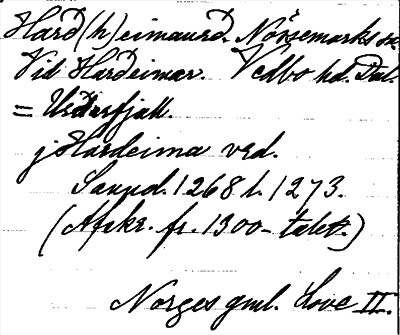 Harð(h)eimaurd. Nössemarks sn
Vid Harðeimar. Vedbo hd. Dal.
= Urdarfjall.
j Hardeima vrd.
Samd. 1268 l. 1273.
(Afskr. fr. 1300-talet.)
Norges gml. Love II.